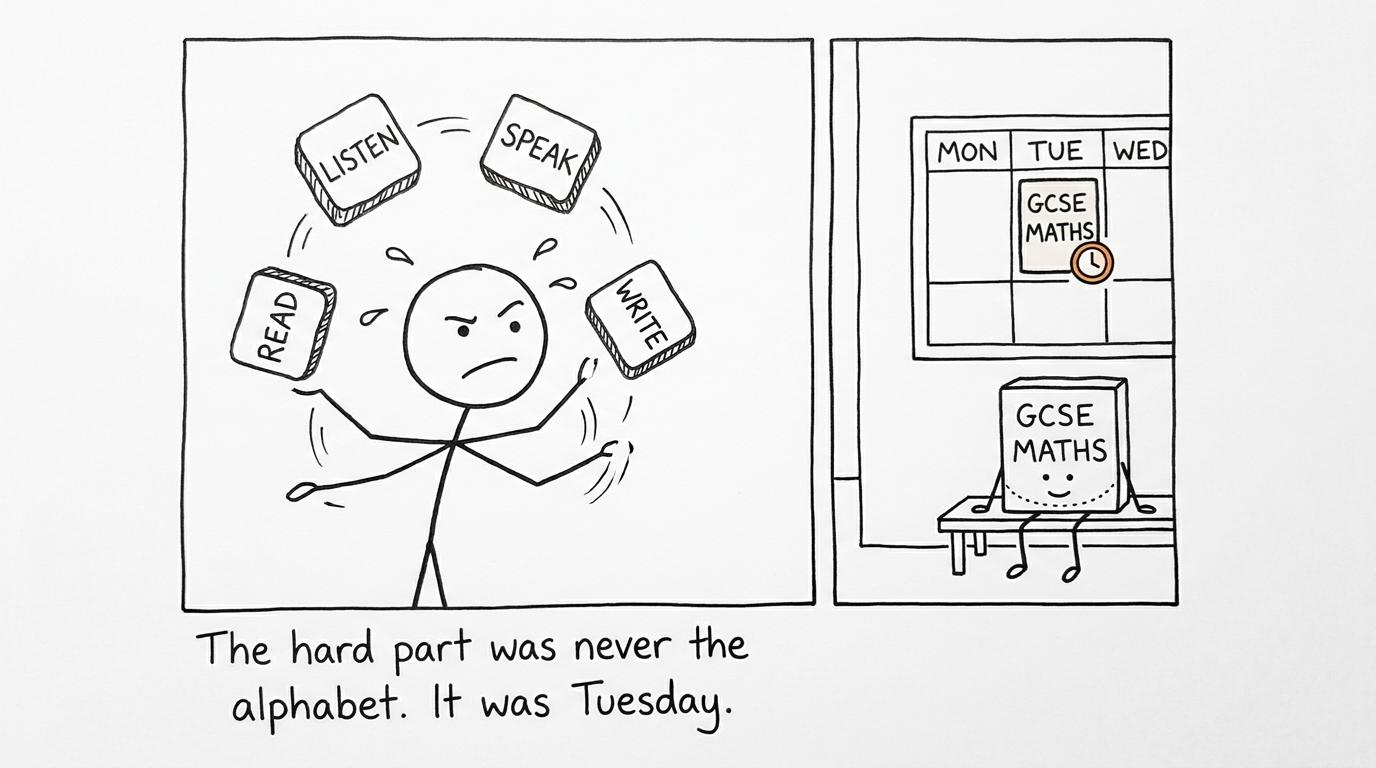 LISTEN
SPEAK
READ
WRITE
MON TUE WED
GCSE
MATHS
GCSE
MATHS
The hard part was never the
alphabet. It was Tuesday.